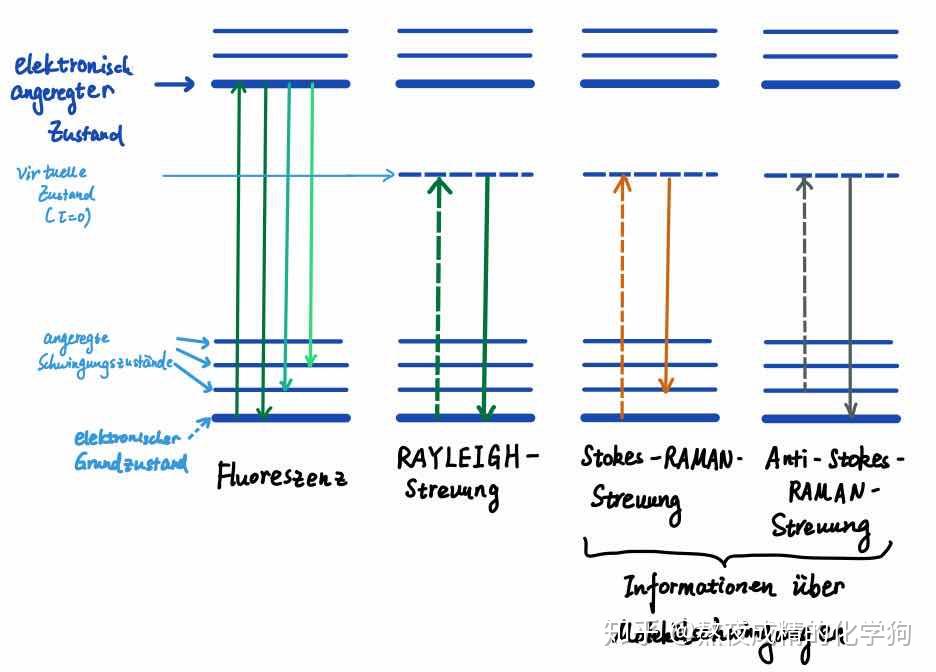 elektronisch
angeregter
Zustand
Virtuelle
Zustand
(τ=0)
angeregte
Schwingungszustände
elektronischer
Grundzustand
Fluoreszenz
RAYLEIGH-
Streuung
Stokes-RAMAN-
Streuung
Anti-Stokes-
RAMAN-
Streuung
Informationen über
Molekülschwingungen
知乎 @熬夜成精的化学狗